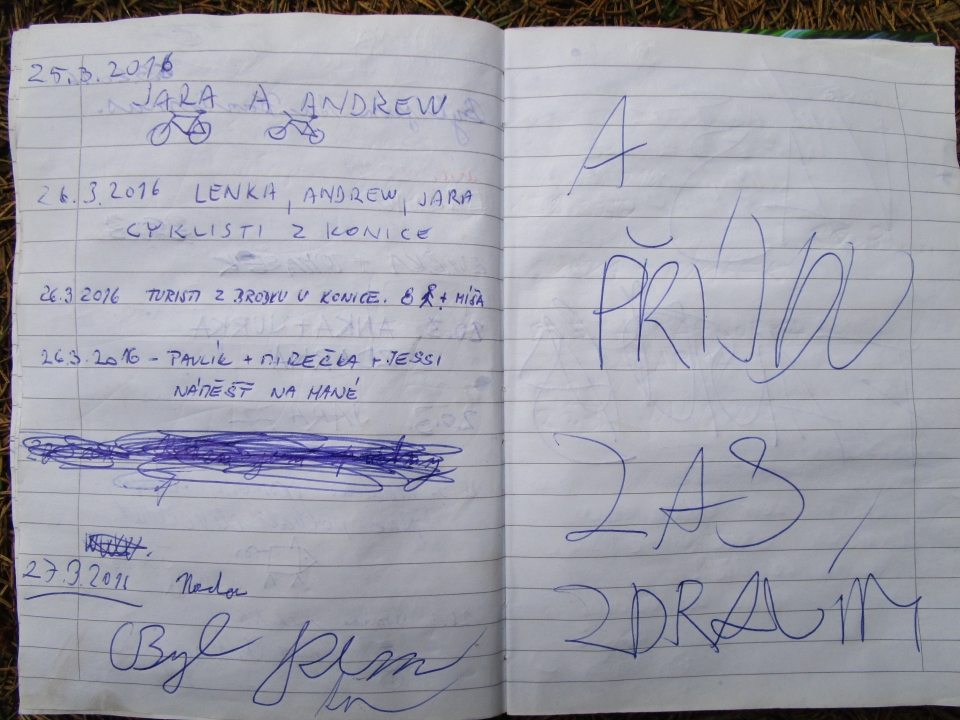 25.3.2016
JARA A ANDREW
26.3.2016 LENKA, ANDREW, JARA
CYKLISTI Z KONICE
26.3 2016 TURISTI Z BRODKU U KONICE. + MÍŠA
26.3.2016 - PAVLÍK + MIREČKA + JESSI
NÁMĚŠŤ NA HANÉ
27.3.2016
Byl jsem
A
PŘÍJDU
ZAS
ZDRAVÍM